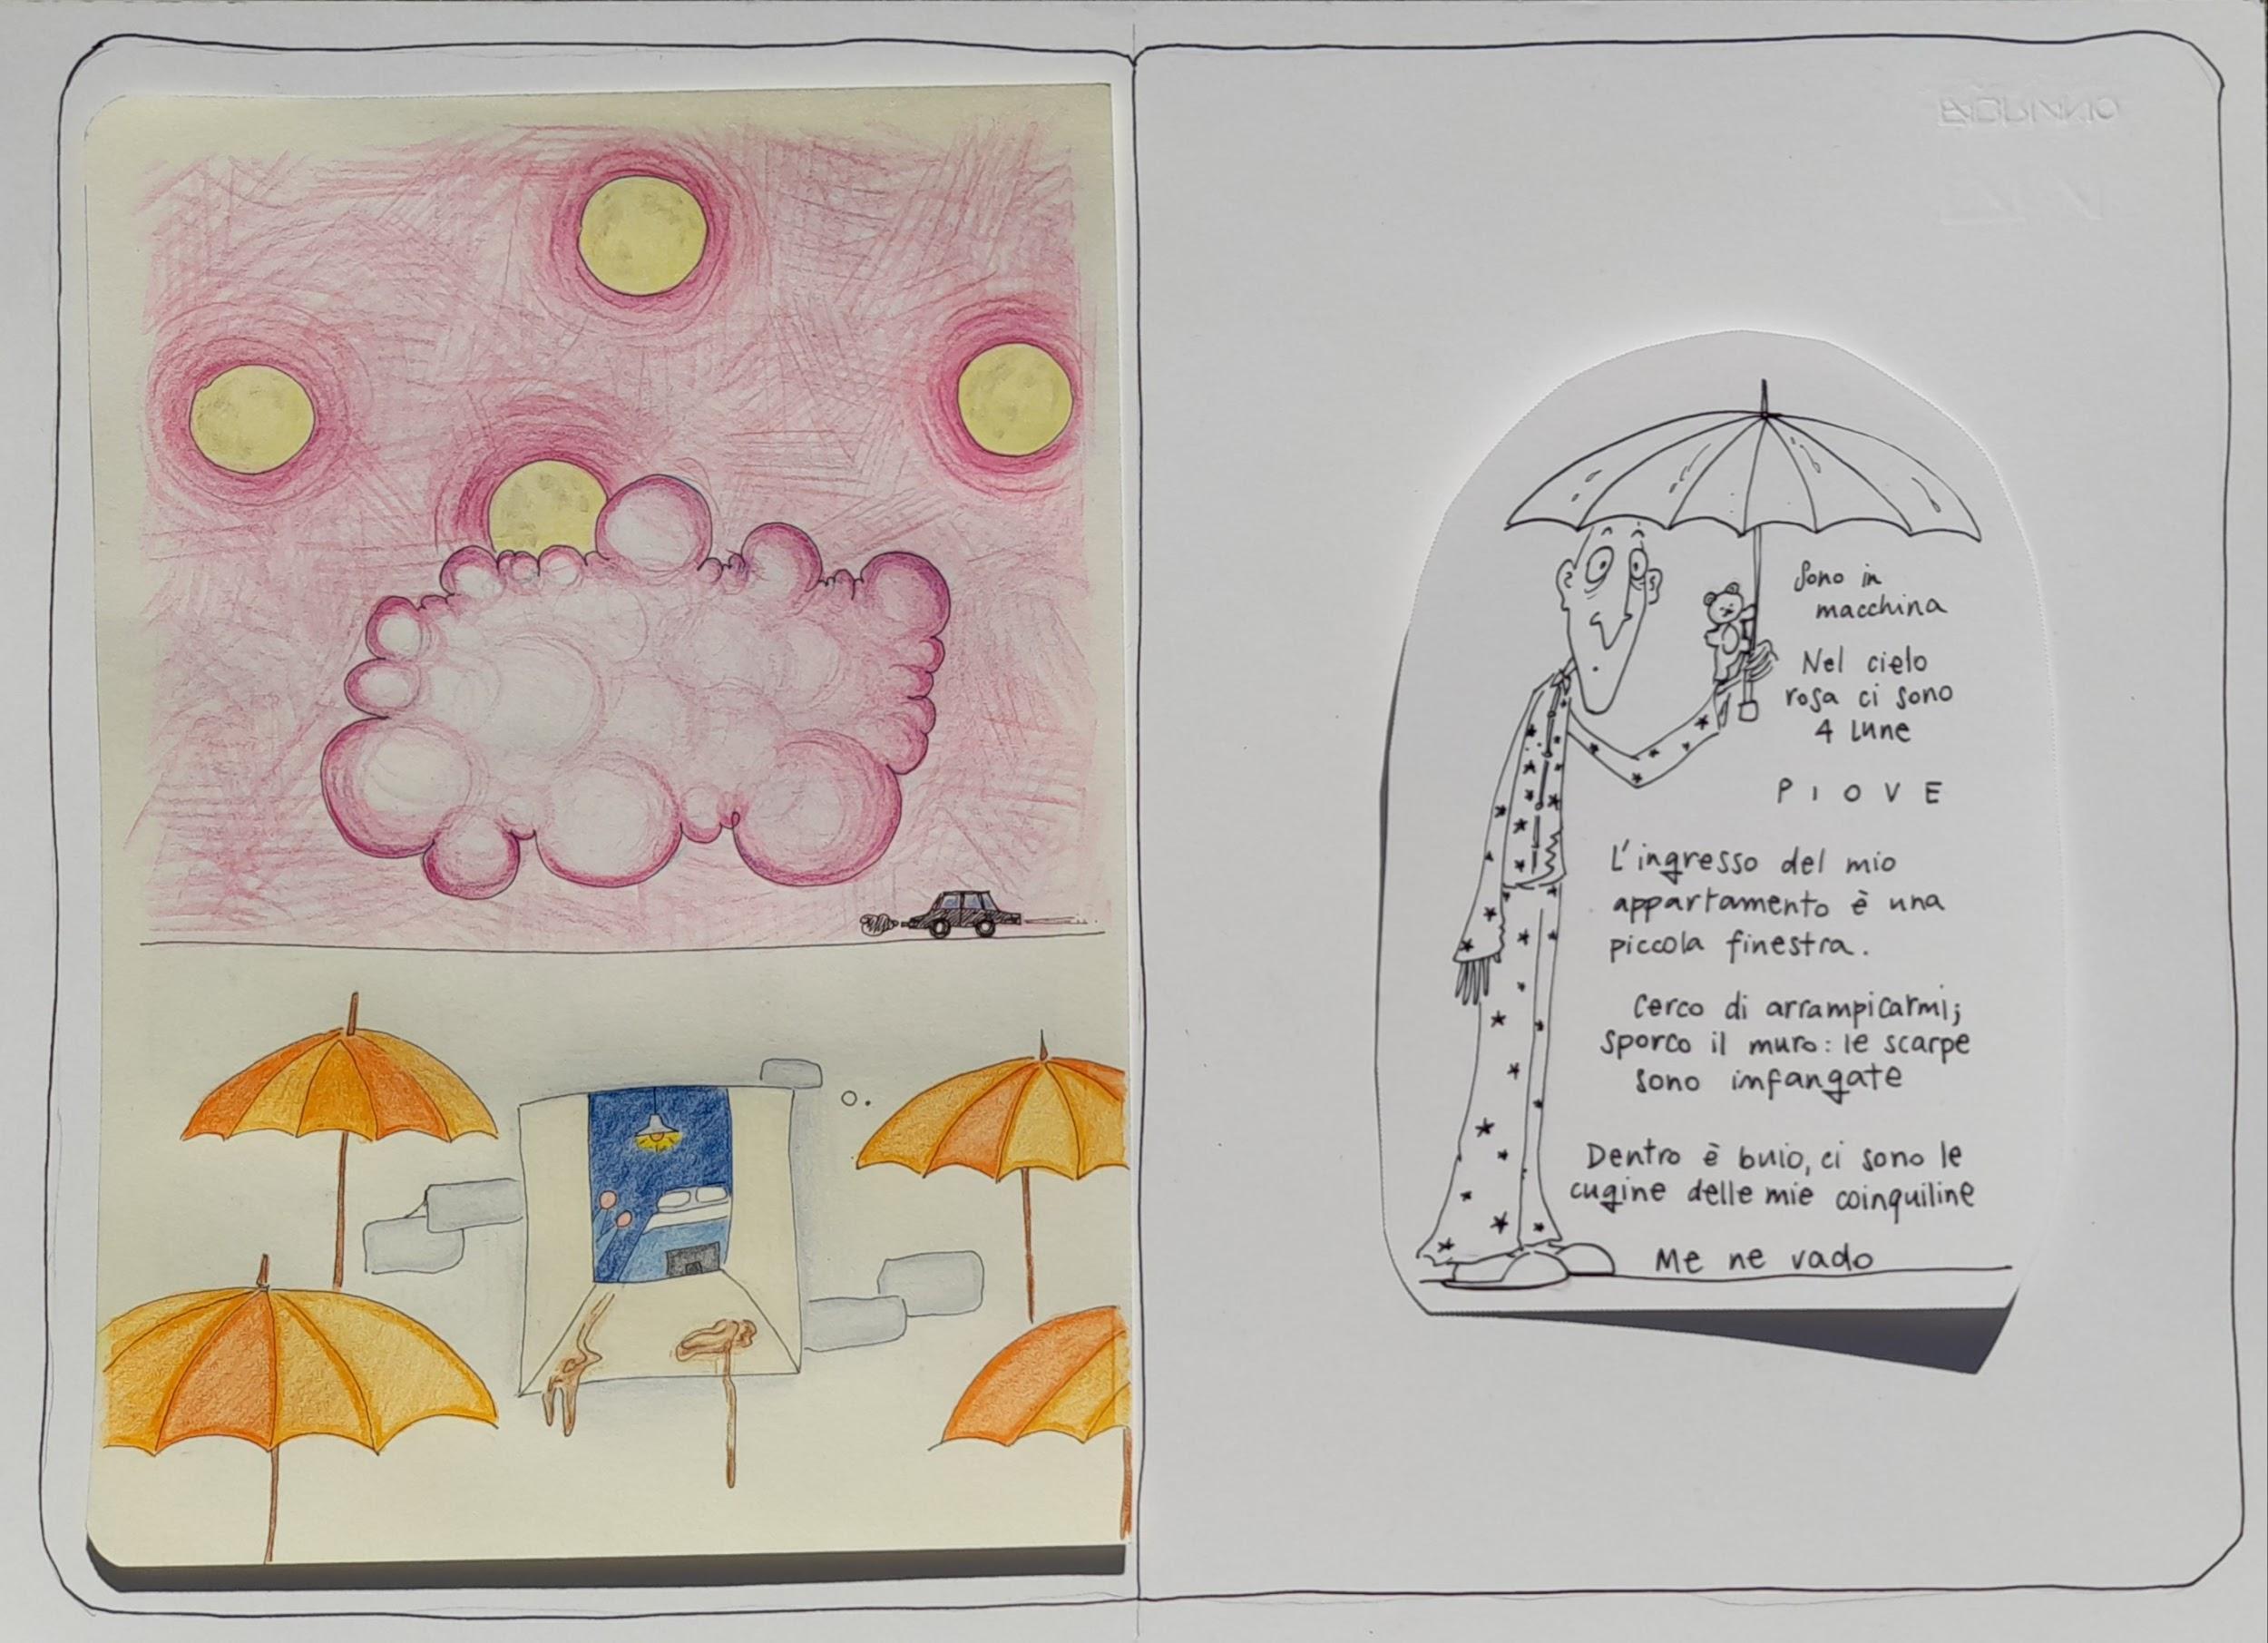 Sono in
macchina
Nel cielo
rosa ci sono
4 lune
PIOVE
L'ingresso del mio
appartamento è una
piccola finestra.
Cerco di arrampicarmi;
sporco il muro: le scarpe
sono infangate
Dentro è buio, ci sono le
cugine delle mie coinquiline
Me ne vado